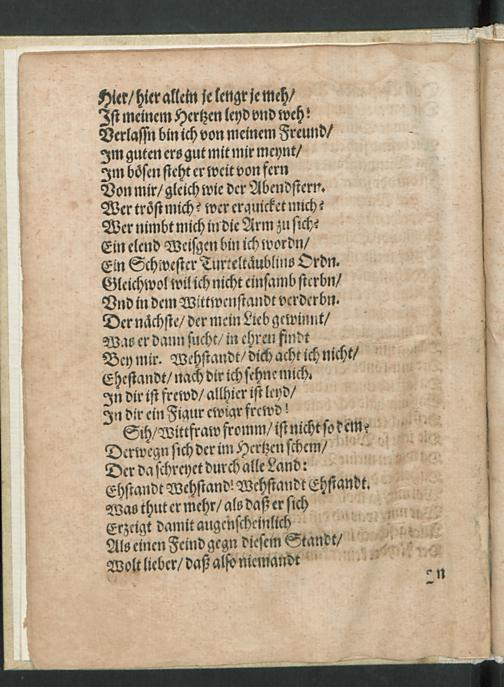 Hier/ hier allein je lengr je meh/
Ist meinem Hertzen leyd vnd weh!
Verlassn bin ich von meinem Freund/
Im guten ers gut mit mir meynt/
Im bösen steht er weit von fern
Von mir/ gleich wie der Abendstern.
Wer tröst mich? wer erquicket mich?
Wer nimbt mich in die Arm zu sich?
Ein elend Weisgen bin ich wordn/
Ein Schwester Turteltäublins Ordn.
Gleichwol wil ich nicht einsamb sterbn/
Vnd in dem Wittwenstandt verderbn.
Der nächste/ der mein Lieb gewinnt/
Was er dann sucht/ in ehren findt
Bey mir. Wehstandt/ dich acht ich nicht/
Ehestandt/ nach dir ich sehne mich.
In dir ist frewd/ allhier ist leyd/
In dir ein Figur ewigr frewd!
Sih/ Wittfraw fromm/ ist nicht so dem?
Derwegn sich der im Hertzen schem/
Der da schreyet durch alle Land:
Ehstandt Wehstand! Wehstandt Ehstandt.
Was thut er mehr/ als daß er sich
Erzeigt damit augenscheinlich
Als einen Feind gegn diesem Standt/
Wolt lieber/ daß also niemandt